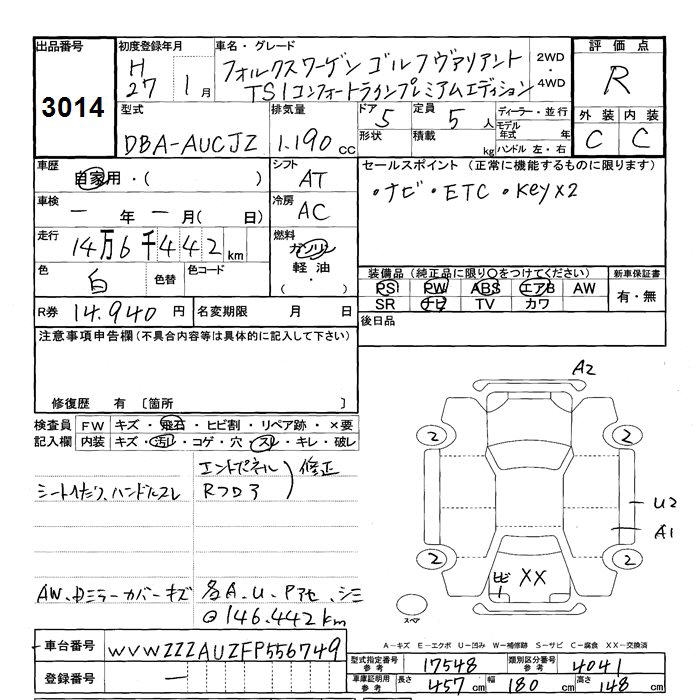 出品番号
3014
初度登録年月
H
27 1月
車名・グレード
フォルクスワーゲン ゴルフヴァリアント
TSIコンフォートラインプレミアムエディション
2WD
・
4WD
評価点
R
外装 内装
C C
型式
DBA-AUCJZ
排気量
1.190 cc
ドア
5
定員
5人
形状
積載
kg
ディーラー・並行
モデル年式 年
ハンドル 左・右
車歴
自家用・( )
シフト
AT
車検
一 年 一 月( 日)
冷房
AC
走行
14万6千442 km
燃料
ガソリン
軽油
( ・ )
色
白
色替
色コード
セールスポイント (正常に機能するものに限ります)
・ナビ・ETC・Key×2
装備品(純正品に限り○をつけてください)
PS PW ABS エアB AW
SR ナビ TV カワ
新車保証書
有・無
R券 14.940 円
名変期限 月 日
後日品
注意事項申告欄(不具合内容等は具体的に記入して下さい)
修復歴 有 〔箇所 〕
検査員
記入欄
FW キズ・飛石・ヒビ割・リペア跡・×要
内装 キズ・汚れ・コゲ・穴・スレ・キレ・破レ
エンドパネル
Rフロア
修正
シートヘタリ、ハンドルスレ
AW、ドミラーカバーキズ
各A.U.Pアセ、シミ
◎146.442km
A2
2
2
2
2
U2
A1
XX
スペア
A-キズ E-エクボ U-凹み W-補修跡 S-サビ C-腐食 XX-交換済
車台番号
WVWZZZAUZFP556749
登録番号
一
型式指定番号
参考
17548
類別区分番号
参考
4041
車庫証明用
参考
長さ 457 cm 幅 180 cm 高さ 148 cm